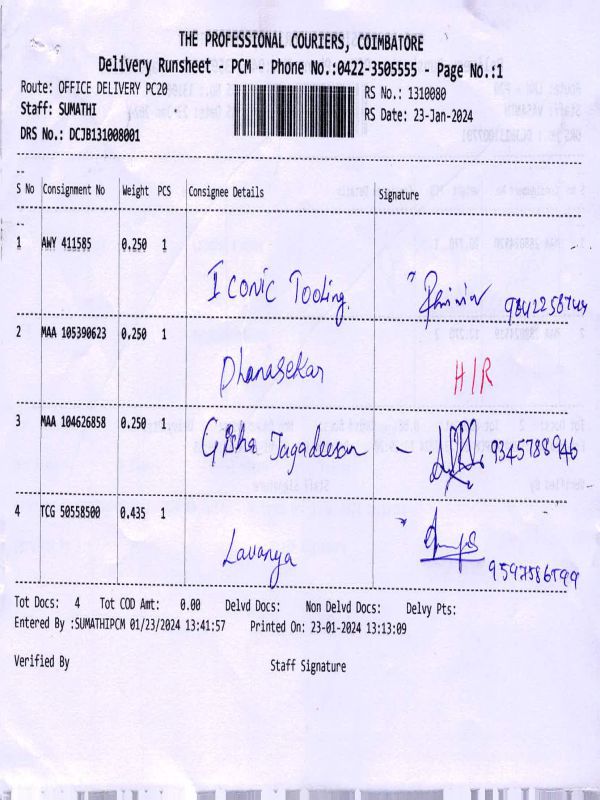 THE PROFESSIONAL COURIERS, COIMBATORE
Delivery Runsheet - PCM - Phone No.:0422-3505555 - Page No.:1
Route: OFFICE DELIVERY PC20 RS No.: 1310080
Staff: SUMATHI RS Date: 23-Jan-2024
DRS No.: DCJB131008001
S No Consignment No Weight PCS Consignee Details Signature
1 AWY 411585 0.250 1
Iconic Tooling.
2 MAA 105390623 0.250 1
Dhanasekar H/R
3 MAA 104626858 0.250 1
Jagadeesan - 9345788946
4 TCG 50558500 0.435 1
Lavanya
Tot Docs: 4 Tot COD Amt: 0.00 Delvd Docs: Non Delvd Docs: Delvy Pts:
Entered By :SUMATHIPCM 01/23/2024 13:41:57 Printed On: 23-01-2024 13:13:09
Verified By Staff Signature